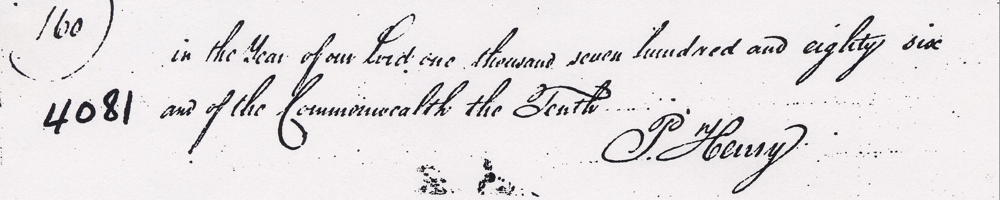 160
in the Year of our Lord one thousand seven hundred and eighty six
4081 and of the Commonwealth the Tenth
P. Henry